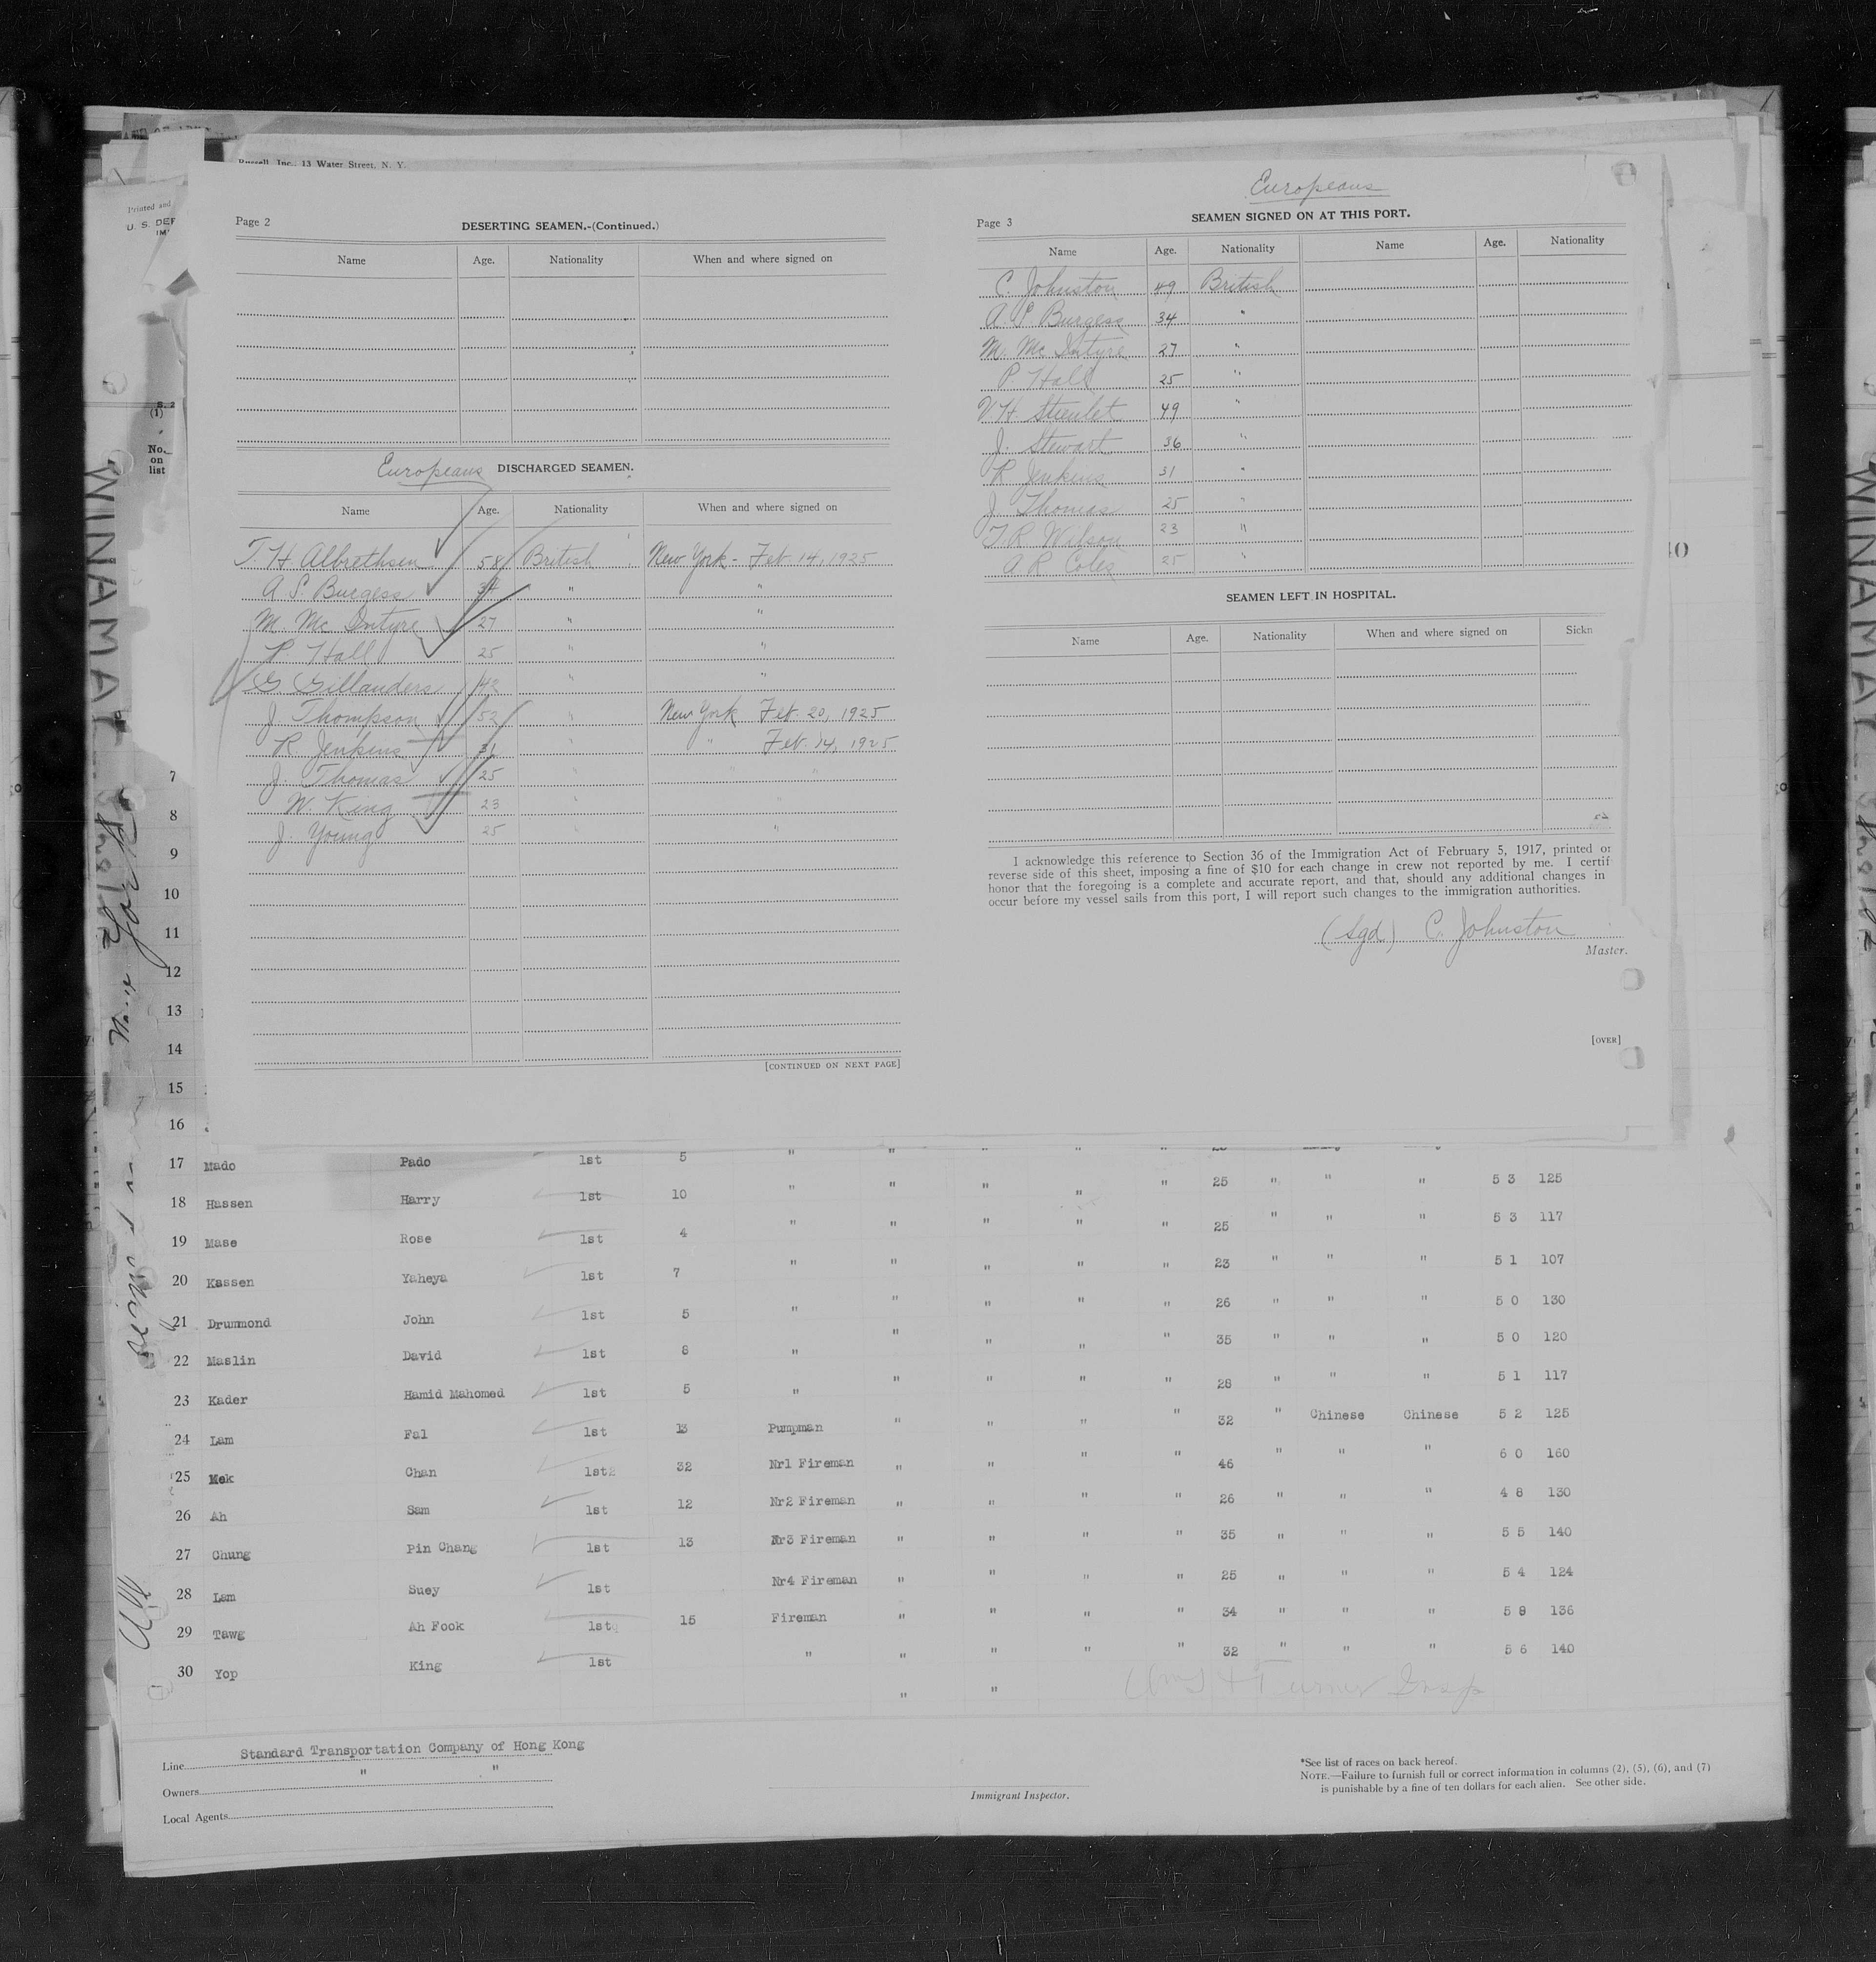 Russell, Inc., 13 Water Street, N. Y.
Printed and
U. S. DEP
IM
No.
on
list
WINAMAC
New York
Page 2
DESERTING SEAMEN.-(Continued.)
Name Age. Nationality When and where signed on
Europeans DISCHARGED SEAMEN.
Name Age. Nationality When and where signed on
T. H Albrethsen 58 British New York - Feb. 14, 1925
A S. Burgess 34 " "
M. Mc Intyre 27 " "
P. Hall 25 " "
G Gillanders 42 " "
J. Thompson 52 " New York Feb. 20, 1925
R. Jenkins 31 " " Feb. 14, 1925
J. Thomas 25 " " "
W. King 23 " "
J. Young 25 " "
[CONTINUED ON NEXT PAGE]
Europeans
Page 3
SEAMEN SIGNED ON AT THIS PORT.
Name Age. Nationality Name Age. Nationality
C. Johnston 49 British
A S Burgess 34 "
M. Mc Intyre 27 "
P. Hall 25 "
V. H. Steulet 49 "
J. Stewart 36 "
R Jenkins 31 "
J. Thomas 25 "
T. R Wilson 23 "
A R Coles 25 "
SEAMEN LEFT IN HOSPITAL.
Name Age. Nationality When and where signed on Sickn
I acknowledge this reference to Section 36 of the Immigration Act of February 5, 1917, printed or
reverse side of this sheet, imposing a fine of $10 for each change in crew not reported by me. I certif
honor that the foregoing is a complete and accurate report, and that, should any additional changes in
occur before my vessel sails from this port, I will report such changes to the immigration authorities.
(Sgd) C. Johnston
Master.
[OVER]
7
8
9
10
11
12
13
14
15
16
17 Mado Pado 1st 5 " " " " " 25 " " " 5 3 125
18 Hassen Harry 1st 10 " " " " " 25 " " " 5 3 117
19 Mase Rose 1st 4 " " " " " 23 " " " 5 1 107
20 Kassen Yaheya 1st 7 " " " " " 26 " " " 5 0 130
21 Drummond John 1st 5 " " " " " 35 " " " 5 0 120
22 Maslin David 1st 8 " " " " " 28 " " " 5 1 117
23 Kader Hamid Mahomed 1st 5 " " " " " 32 " Chinese Chinese 5 2 125
24 Lam Fal 1st 13 Pumpman " " " " 46 " " " 6 0 160
25 Mek Chan 1st 32 Nr1 Fireman " " " " 26 " " " 4 8 130
26 Ah Sam 1st 12 Nr2 Fireman " " " " 35 " " " 5 5 140
27 Chung Pin Chang 1st 13 Nr3 Fireman " " " " 25 " " " 5 4 124
28 Lam Suey 1st Nr4 Fireman " " " " 34 " " " 5 8 136
29 Tawg Ah Fook 1st 15 Fireman " " " " 32 " " " 5 6 140
30 Yop King 1st " " "
Turner Insp
Line Standard Transportation Company of Hong Kong
Owners " "
Local Agents
Immigrant Inspector.
*See list of races on back hereof.
NOTE.—Failure to furnish full or correct information in columns (2), (5), (6), and (7)
is punishable by a fine of ten dollars for each alien. See other side.